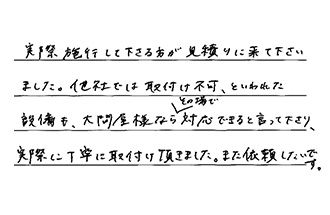 実際施行して下さる方が見積りに来て下さい
ました。他社では取付け不可、といわれた
設備も、大問屋様ならその場で対応できると言って下さり、
実際に丁寧に取付け頂きました。また依頼したいです。